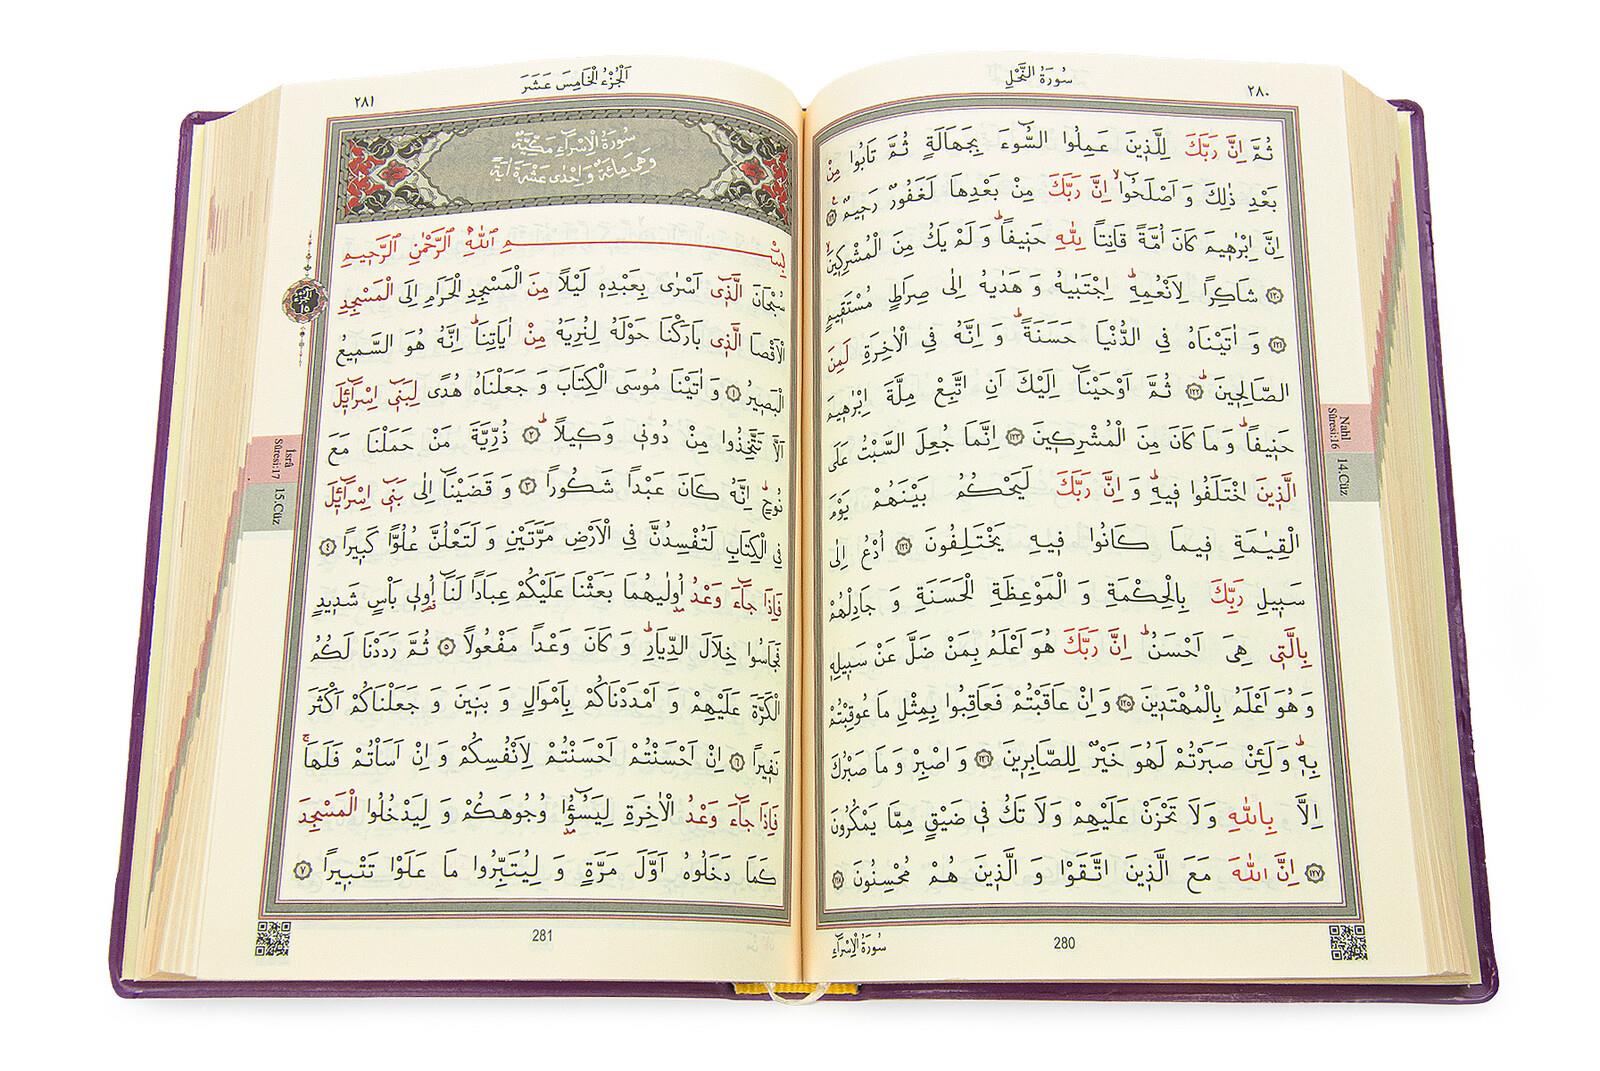 سُورَةُ النَّحْلِ
٢٨٠
ثُمَّ اِنَّ رَبَّكَ لِلَّذ۪ينَ عَمِلُوا السُّٓوءَ بِجَهَالَةٍ ثُمَّ تَابُوا مِنْ
بَعْدِ ذٰلِكَ وَاَصْلَحُٓواۙ اِنَّ رَبَّكَ مِنْ بَعْدِهَا لَغَفُورٌ رَح۪يمٌ۟ ﴿١١٩﴾
اِنَّ اِبْرٰه۪يمَ كَانَ اُمَّةً قَانِتاً لِلّٰهِ حَن۪يفاًۜ وَلَمْ يَكُ مِنَ الْمُشْرِك۪ينَۙ
﴿١٢٠﴾ شَاكِراً لِاَنْعُمِهِۜ اِجْتَبٰيهُ وَهَدٰيهُ اِلٰى صِرَاطٍ مُسْتَق۪يمٍ
﴿١٢١﴾ وَاٰتَيْنَاهُ فِي الدُّنْيَا حَسَنَةًۜ وَاِنَّهُ فِي الْاٰخِرَةِ لَمِنَ
الصَّالِح۪ينَۜ ﴿١٢٢﴾ ثُمَّ اَوْحَيْنَٓا اِلَيْكَ اَنِ اتَّبِعْ مِلَّةَ اِبْرٰه۪يمَ
حَن۪يفاًۜ وَمَا كَانَ مِنَ الْمُشْرِك۪ينَ ﴿١٢٣﴾ اِنَّمَا جُعِلَ السَّبْتُ عَلَى
الَّذ۪ينَ اخْتَلَفُوا ف۪يهِۜ وَاِنَّ رَبَّكَ لَيَحْكُمُ بَيْنَهُمْ يَوْمَ
الْقِيٰمَةِ ف۪يمَا كَانُوا ف۪يهِ يَخْتَلِفُونَ ﴿١٢٤﴾ اُدْعُ اِلٰى
سَب۪يلِ رَبِّكَ بِالْحِكْمَةِ وَالْمَوْعِظَةِ الْحَسَنَةِ وَجَادِلْهُمْ
بِالَّت۪ي هِيَ اَحْسَنُۜ اِنَّ رَبَّكَ هُوَ اَعْلَمُ بِمَنْ ضَلَّ عَنْ سَب۪يلِه۪
وَهُوَ اَعْلَمُ بِالْمُهْتَد۪ينَ ﴿١٢٥﴾ وَاِنْ عَاقَبْتُمْ فَعَاقِبُوا بِمِثْلِ مَا عُوقِبْتُمْ
بِه۪ۜ وَلَئِنْ صَبَرْتُمْ لَهُوَ خَيْرٌ لِلصَّابِر۪ينَ ﴿١٢٦﴾ وَاصْبِرْ وَمَا صَبْرُكَ
اِلَّا بِاللّٰهِ وَلَا تَحْزَنْ عَلَيْهِمْ وَلَا تَكُ ف۪ي ضَيْقٍ مِمَّا يَمْكُرُونَ
﴿١٢٧﴾ اِنَّ اللّٰهَ مَعَ الَّذ۪ينَ اتَّقَوْا وَالَّذ۪ينَ هُمْ مُحْسِنُونَ ﴿١٢٨﴾
Nahl
Sûresi:16
14.Cüz
280
سُورَةُ الْاِسْرَاءِ
اَلْجُزْءُ الْخَامِسَ عَشَرَ
٢٨١
سُورَةُ الْاِسْرَٓاءِ مَكِّيَّةٌ
وَهِيَ مِائَةٌ وَاِحْدٰى عَشْرَةَ اٰيَةً
بِسْمِ اللّٰهِ الرَّحْمٰنِ الرَّح۪يمِ
سُبْحَانَ الَّذ۪ٓي اَسْرٰى بِعَبْدِه۪ لَيْلاً مِنَ الْمَسْجِدِ الْحَرَامِ اِلَى الْمَسْجِدِ
الْاَقْصَا الَّذ۪ي بَارَكْنَا حَوْلَهُ لِنُرِيَهُ مِنْ اٰيَاتِنَاۜ اِنَّهُ هُوَ السَّم۪يعُ
الْبَص۪يرُ ﴿١﴾ وَاٰتَيْنَا مُوسَى الْكِتَابَ وَجَعَلْنَاهُ هُدًى لِبَن۪ٓي اِسْرَٓائ۪لَ
اَلَّا تَتَّخِذُوا مِنْ دُون۪ي وَك۪يلاًۜ ﴿٢﴾ ذُرِّيَّةَ مَنْ حَمَلْنَا مَعَ
نُوحٍۜ اِنَّهُ كَانَ عَبْداً شَكُوراً ﴿٣﴾ وَقَضَيْنَٓا اِلٰى بَن۪ٓي اِسْرَٓائ۪لَ
فِي الْكِتَابِ لَتُفْسِدُنَّ فِي الْاَرْضِ مَرَّتَيْنِ وَلَتَعْلُنَّ عُلُوًّا كَب۪يراً ﴿٤﴾
فَاِذَا جَٓاءَ وَعْدُ اُو۫لٰيهُمَا بَعَثْنَا عَلَيْكُمْ عِبَاداً لَنَٓا اُو۬ل۪ي بَأْسٍ شَد۪يدٍ
فَجَاسُوا خِلَالَ الدِّيَارِۜ وَكَانَ وَعْداً مَفْعُولاً ﴿٥﴾ ثُمَّ رَدَدْنَا لَكُمُ
الْكَرَّةَ عَلَيْهِمْ وَاَمْدَدْنَاكُمْ بِاَمْوَالٍ وَبَن۪ينَ وَجَعَلْنَاكُمْ اَكْثَرَ
نَف۪يراً ﴿٦﴾ اِنْ اَحْسَنْتُمْ اَحْسَنْتُمْ لِاَنْفُسِكُمْ وَاِنْ اَسَأْتُمْ فَلَهَاۚ
فَاِذَا جَٓاءَ وَعْدُ الْاٰخِرَةِ لِيَسُٓوؤُ۫ا وُجُوهَكُمْ وَلِيَدْخُلُوا الْمَسْجِدَ
كَمَا دَخَلُوهُ اَوَّلَ مَرَّةٍ وَلِيُتَبِّرُوا مَا عَلَوْا تَتْب۪يراً ﴿٧﴾
الجزء
١٥
İsrâ
Sûresi:17
15.Cüz
281